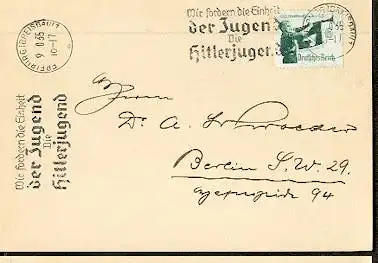 FREIBURG (BREISGAU) 1
9. 6 35
10-17
Wir fordern die Einheit
der Jugend
Die
Hitlerjugend
35
-17
Deutsches Reich
Wir fordern die Einheit
der Jugend
Die
Hitlerjugend
Herrn
Dr. A.
Berlin S.W. 29.
94